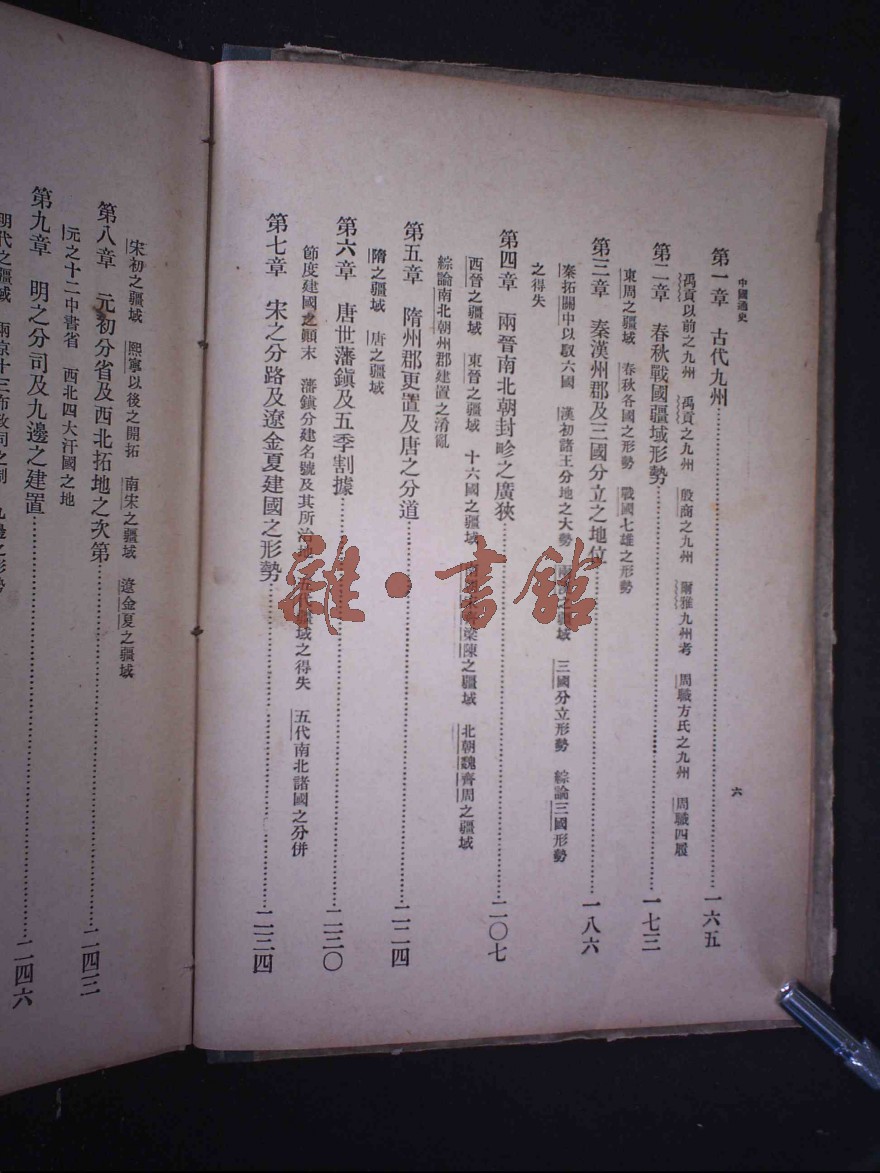 中國通史
六
第一章　古代九州……一六五
禹貢以前之九州　禹貢之九州　殷商之九州　爾雅九州考　周職方氏之九州　周職四履
第二章　春秋戰國疆域形勢……一七三
東周之疆域　春秋各國之形勢　戰國七雄之形勢
第三章　秦漢州郡及三國分立之地位……一八六
秦拓關中以馭六國　漢初諸王分地之大勢　兩漢之疆域　三國分立形勢　綜論三國形勢
之得失
第四章　兩晉南北朝封畛之廣狹……二〇七
西晉之疆域　東晉之疆域　十六國之疆域　梁陳之疆域　北朝魏齊周之疆域
綜論南北朝州郡建置之淆亂
第五章　隋州郡更置及唐之分道……二二四
隋之疆域　唐之疆域
第六章　唐世藩鎮及五季割據……二三〇
節度建國之顛末　藩鎮分建名號及其所治地　域之得失　五代南北諸國之分併
第七章　宋之分路及遼金夏建國之形勢……二三四
宋初之疆域　熙寧以後之開拓　南宋之疆域　遼金夏之疆域
第八章　元初分省及西北拓地之次第……二四三
元之十二中書省　西北四大汗國之地
第九章　明之分司及九邊之建置……二四六
明代之疆域　兩京十三布政司之制　九邊之形勢
雜·書館